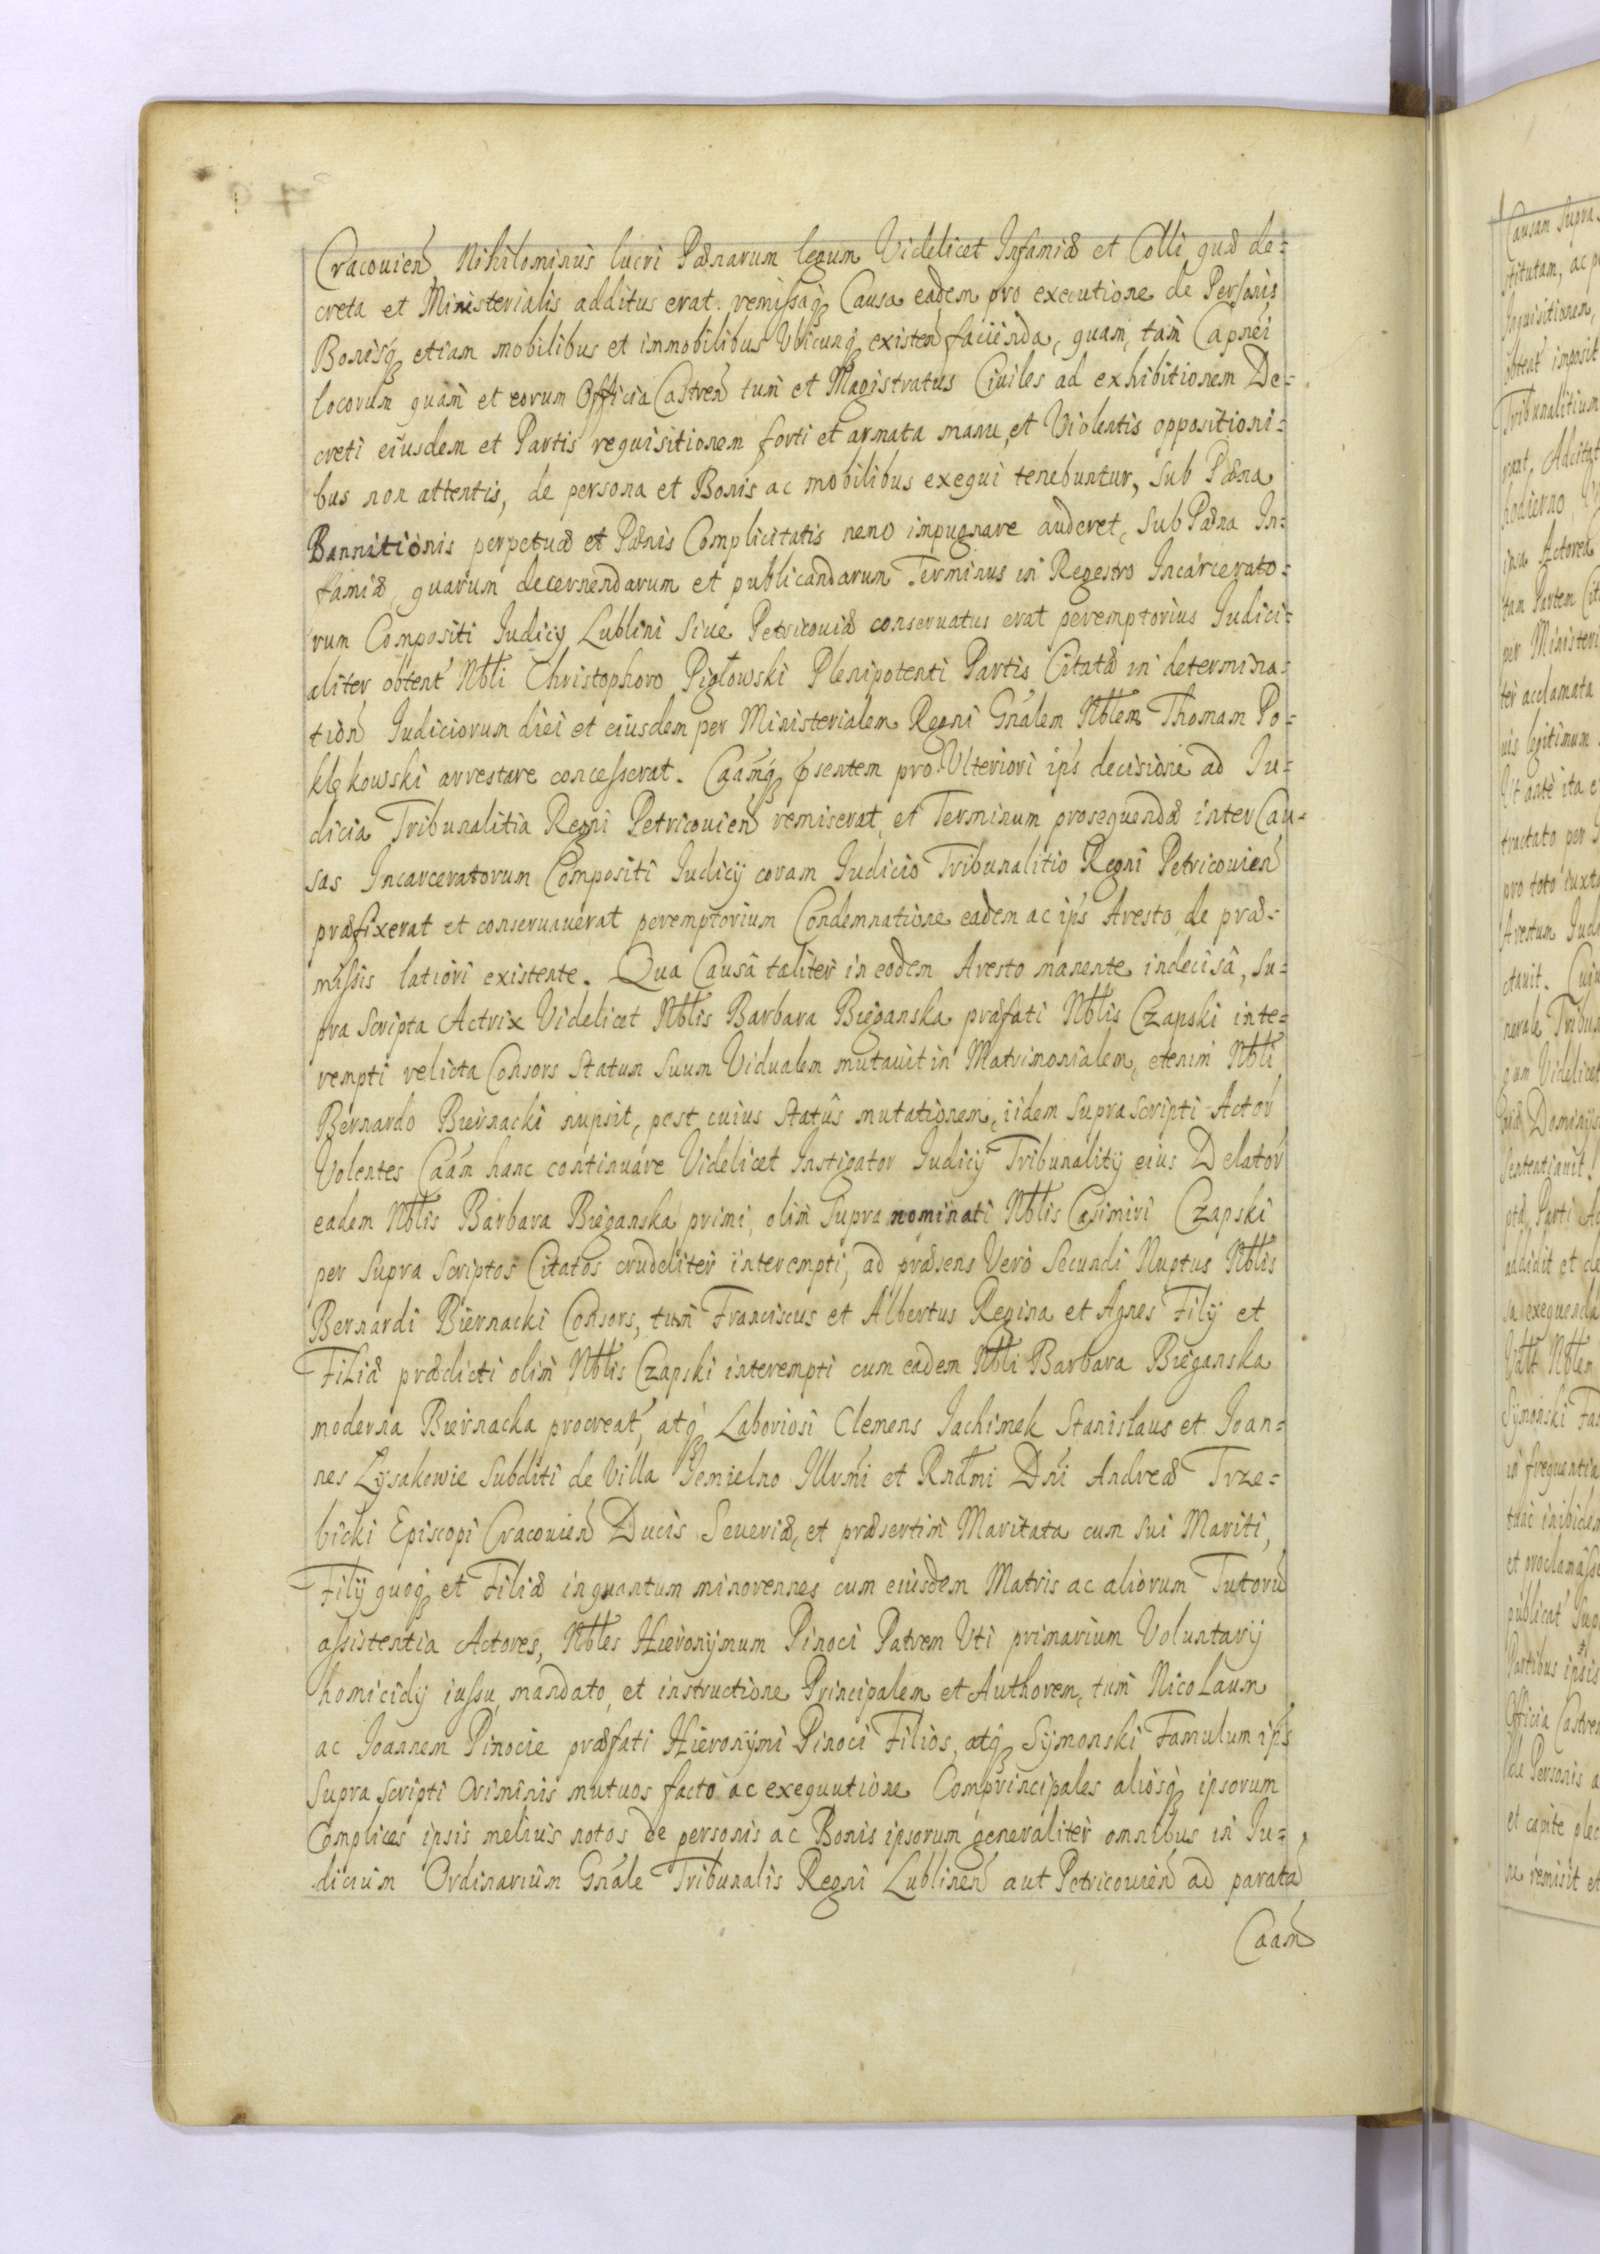 Cracovien̄ Nihilominus lucri Pænarum legum Videlicet Infamiæ et Colli quæ de=
creta et Ministerialis additus erat. remissaq́ Causa eadem pro executione de Personis
Bonisq́ etiam mobilibus et immobilibus Vbicunq́ existen̄ facienda, quam, tam Capnei
locorum quam et eorum Officia Castren̄ tum et Magistratus Ciuiles ad exhibitionem De=
creti eiusdem et Partis requisitionem forti et armata manu, et Violentis oppositioni=
bus non attentis, de persona et Bonis ac mobilibus exequi tenebuntur, sub Pæna
Bannitionis perpetuæ et Pænis Complicitatis nemo impugnare auderet, sub Pæna In=
famiæ, quarum decernendarum et publicandarum Terminus in Regestro Incarcerato=
rum Compositi Iudicy Lublini siue Petricouiæ conseruatus erat peremptorius Iudici=
aliter obtent́ Nbli Christophoro Pigłowski Plenipotenti Partis Citatæ in determina=
tion̄ Iudiciorum diei et eiusdem per Ministerialem Regni Gn̄alem Nblem Thomam Po=
klękowski arrestare concesserat. Caām̄q́ p̄sentem pro Vlteriori ip̄s decisione ad Iu=
dicia Tribunalitia Regni Petricouien̄ remiserat, et Terminum prosequendæ inter Cau=
sas Incarceratorum Compositi Iudicij coram Iudicio Tribunalitio Regni Petricouien̄
præfixerat et conseruauerat peremptorium Condemnatione eadem ac ip̄s Aresto de præ=
missis latiori existente. Qua Causâ taliter in eodem Aresto manente indecisâ, su=
pra scripta Actrix Videlicet Nblis Barbara Bieganska præfati Nblis Czapski inte=
rempti relicta Consors statum suum Vidualem mutauit in Matrimonialem, etenim Nbli
Bernardo Biernacki nupsit, post cuius statûs mutationem, iidem supra scripti Actor̄
Volentes Caām̄ hanc continuare Videlicet Instigator Iudicij Tribunalitij eius Delator
eadem Nblis Barbara Bieganska primi, olim supra nominati Nblis Casimiri Czapski
per supra scriptos Citatos crudeliter interempti, ad præsens Verò secundi Nuptus Nblis
Bernardi Biernacki Consors, tum Franciscus et Albertus Regina et Agnes Filij et
Filiæ prædicti olim Nblis Czapski interempti cum eadem Nbli Barbara Bieganska
moderna Biernacka procreat́, atq́ Laboriosi Clemens Iachimek Stanislaus et Ioan=
nes Lysakowie subditi de Villa Jemielno Illrm̄i et Rndm̄i Dn̄i Andreæ Trze=
bicki Episcopi Cracouien̄ Ducis Seueriæ, et præsertim Maritata cum sui Mariti,
Filij quoq́ et Filiæ inquantum minorennes cum eiusdem Matris ac aliorum Tutorū
assistentia Actores, Nbles Hieronymum Pinoci Patrem Vti primarium Voluntarij
homicidij iussu, mandato, et instructione Principalem et Authorem, tum Nicolaum
ac Joannem Pinocie præfati Hieronymi Pinoci Filios, atq́ Symonski Famulum ip̄s
supra scripti Criminis mutuos facto ac exequutione Comprincipales aliosq́ ipsorum
Complices ipsis melius notos de personis ac Bonis ipsorum generaliter omnibus in Iu=
dicium Ordinarium Gn̄ale Tribunalis Regni Lublinen̄ aut Petricouien̄ ad paratā
Caām̄